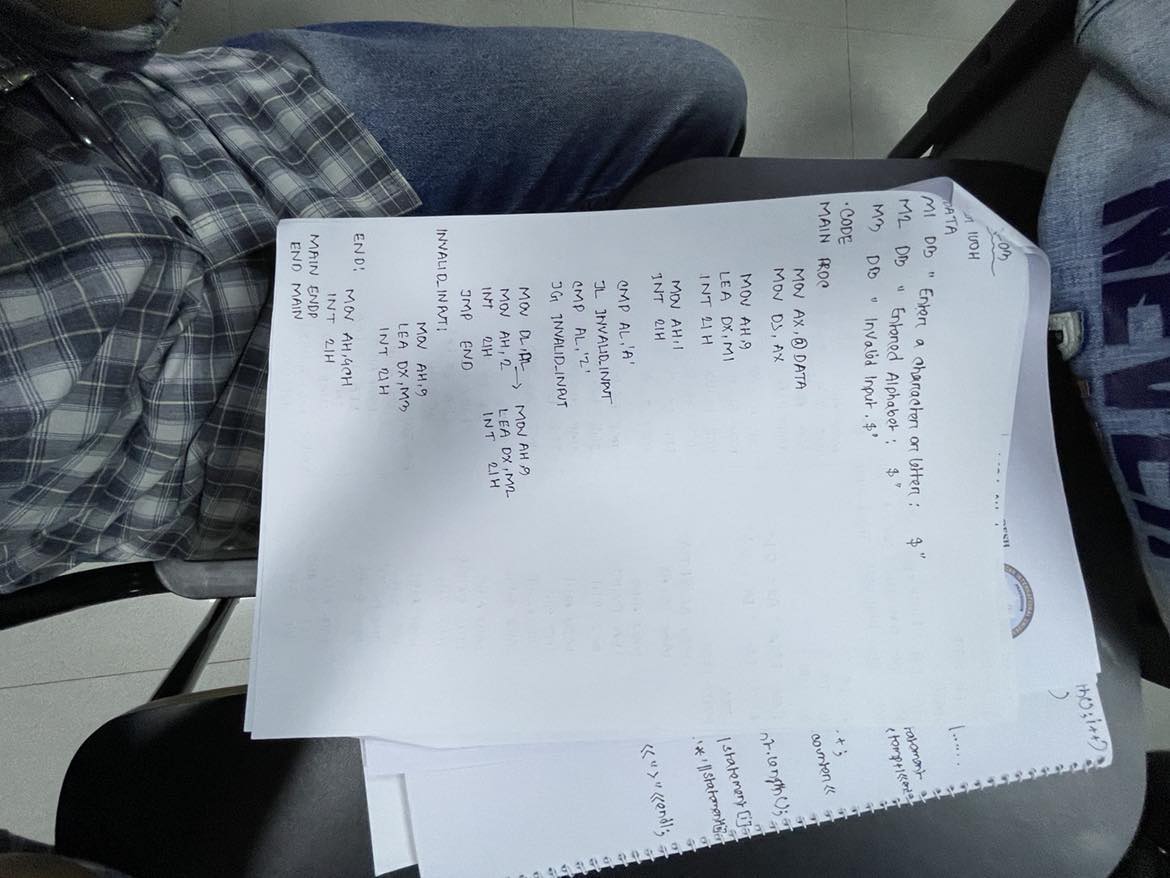 NEVER
100H
DATA
M1 DB " Enter a character or letter : $"
M2 DB " Entered Alphabet : $"
M3 DB " Invalid Input . $"
.CODE
MAIN PROC
MOV AX,@DATA
MOV DS, AX
MOV AH,9
LEA DX,M1
INT 21H
MOV AH,1
INT 21H
CMP AL,'A'
JL INVALID_INPUT
CMP AL,'Z'
JG INVALID_INPUT
MOV DL,AL → MOV AH,9
MOV AH,2 LEA DX,M2
INT 21H INT 21H
JMP END
INVALID_INPUT:
MOV AH,9
LEA DX,M3
INT 21H
END:
MOV AH,4CH
INT 21H
MAIN ENDP
END MAIN
;i++)
)
+;
counter<<
statement[i]
<<">"<<endl;